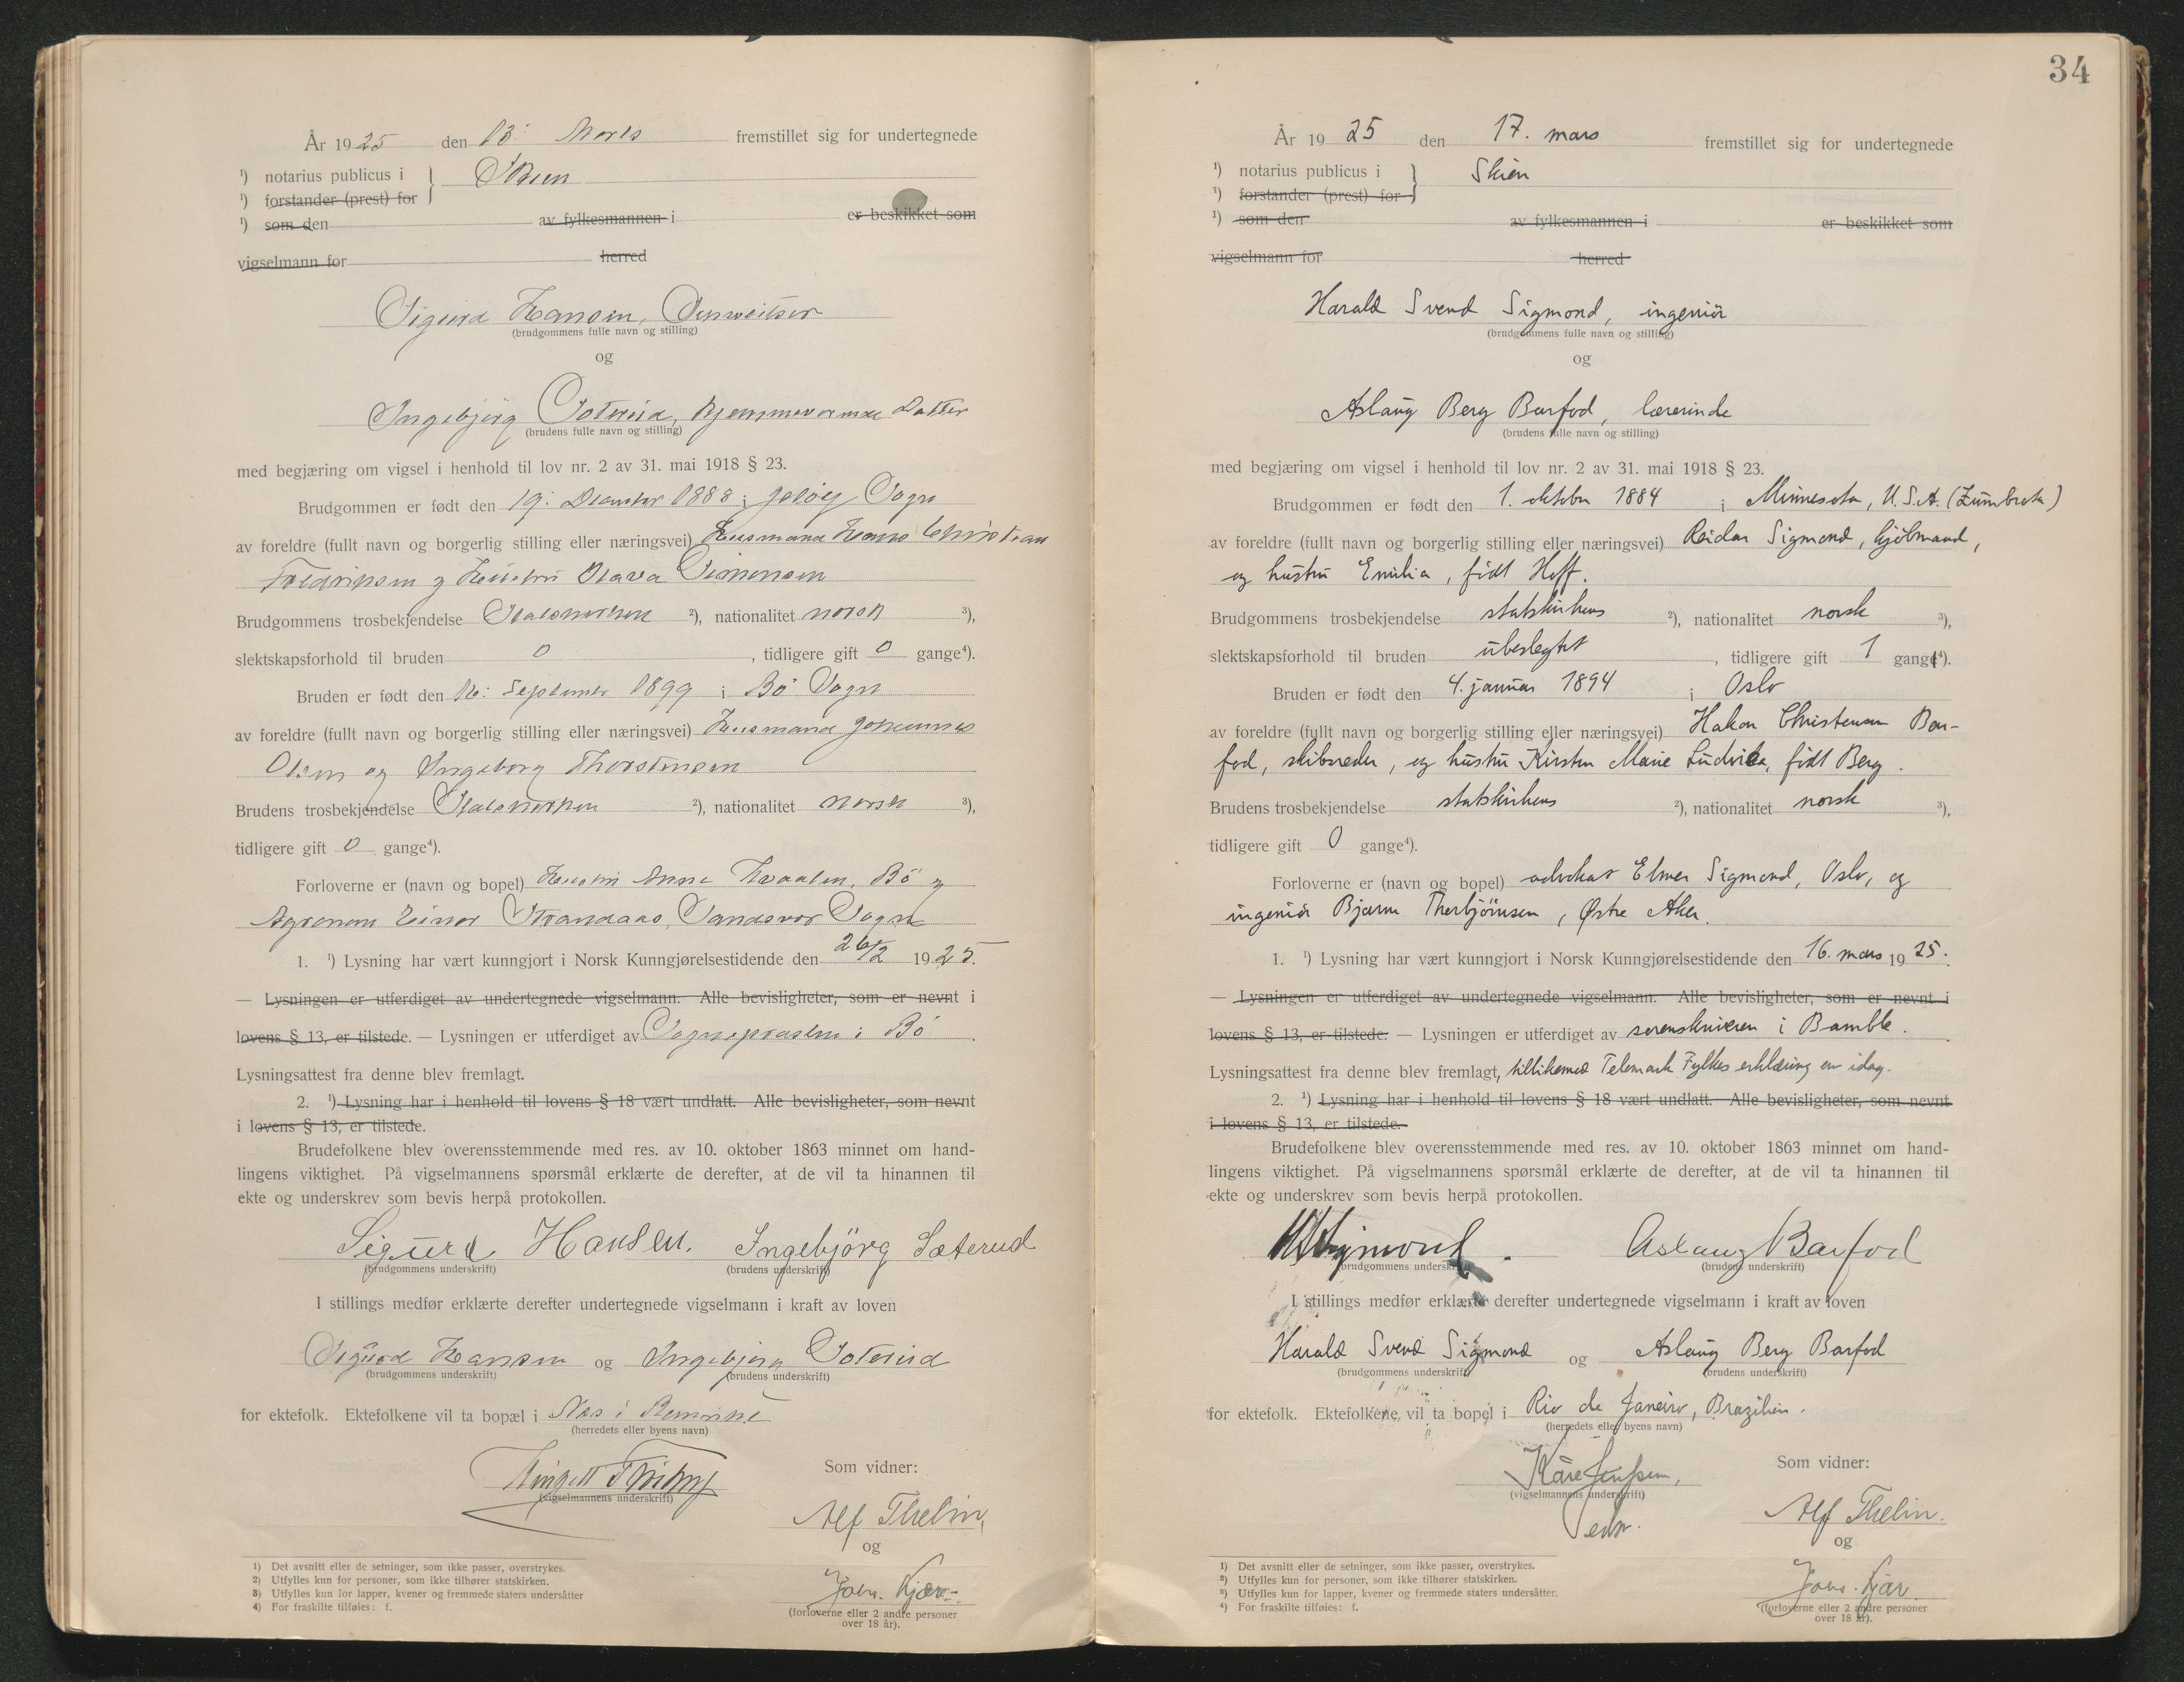 År 1925 den 13: Marts fremstillet sig for undertegnede
¹) notarius publicus i } Skien
¹) forstander (prest) for
¹) som den av fylkesmannen i er beskikket som
vigselmann for herred
Sigurd Hansen,
(brudgommens fulle navn og stilling)
og
Ingebjørg Sæterud, hjemmeværende Datter
(brudens fulle navn og stilling)
med begjæring om vigsel i henhold til lov nr. 2 av 31. mai 1918 § 23.
Brudgommen er født den 19: December 1888 i Sogn
av foreldre (fullt navn og borgerlig stilling eller næringsvei) Husmand Hans Christian
Fredriksen og Hustru Olava Simensen
Brudgommens trosbekjendelse Statskirken ²), nationalitet norsk ³),
slektskapsforhold til bruden 0, tidligere gift 0 gange⁴).
Bruden er født den September 1899 i Bö Sogn
av foreldre (fullt navn og borgerlig stilling eller næringsvei) Husmand Johannes
Olsen og Ingeborg Thorstensen
Brudens trosbekjendelse Statskirken ²), nationalitet norsk ³),
tidligere gift 0 gange⁴).
Forloverne er (navn og bopel) Hustru Anne Kvaalen, Bö og
Agronom Einar Strandaas, Sandsvær Sogn
1. ¹) Lysning har vært kunngjort i Norsk Kunngjørelsestidende den 26/2 1925.
— Lysningen er utferdiget av undertegnede vigselmann. Alle bevisligheter, som er nevnt i
lovens § 13, er tilstede. — Lysningen er utferdiget av Sognepresten i Bö.
Lysningsattest fra denne blev fremlagt.
2. ¹) Lysning har i henhold til lovens § 18 vært undlatt. Alle bevisligheter, som nevnt
i lovens § 13, er tilstede.
Brudefolkene blev overensstemmende med res. av 10. oktober 1863 minnet om hand-
lingens viktighet. På vigselmannens spørsmål erklærte de derefter, at de vil ta hinannen til
ekte og underskrev som bevis herpå protokollen.
Sigurd Hansen. Ingebjörg Sæterud
(brudgommens underskrift) (brudens underskrift)
I stillings medfør erklærte derefter undertegnede vigselmann i kraft av loven
Sigurd Hansen og Ingebjørg Sæterud
(brudgommens underskrift) (brudens underskrift)
for ektefolk. Ektefolkene vil ta bopæl i Næs i
(herredets eller byens navn)
(vigselmannens underskrift)
Som vidner:
Alf Thelin,
og
Johs. Kjær.
(forloverne eller 2 andre personer
over 18 år).
1) Det avsnitt eller de setninger, som ikke passer, overstrykes.
2) Utfylles kun for personer, som ikke tilhører statskirken.
3) Utfylles kun for lapper, kvener og fremmede staters undersåtter
4) For fraskilte tilføies: f.
34
År 1925 den 17. mars fremstillet sig for undertegnede
¹) notarius publicus i } Skien
¹) forstander (prest) for
¹) som den av fylkesmannen i er beskikket som
vigselmann for herred
Harald Svend Sigmond, ingeniör
(brudgommens fulle navn og stilling)
og
Aslaug Berg Barfod, lærerinde
(brudens fulle navn og stilling)
med begjæring om vigsel i henhold til lov nr. 2 av 31. mai 1918 § 23.
Brudgommen er født den 1. oktober 1884 i Minnesota, U.S.A. (Zumbrota)
av foreldre (fullt navn og borgerlig stilling eller næringsvei) Reidar Sigmond, kjöbmand,
og hustru Emilia, född Hoff.
Brudgommens trosbekjendelse statskirkens ²), nationalitet norsk ³),
slektskapsforhold til bruden ubeslegtet, tidligere gift 1 gang⁴).
Bruden er født den 4. januar 1894 i Oslo
av foreldre (fullt navn og borgerlig stilling eller næringsvei) Hakon Christensen Bar-
fod, skibsreder, og hustru Kirsten Marie Ludvika, född Berg.
Brudens trosbekjendelse statskirkens ²), nationalitet norsk ³),
tidligere gift 0 gange⁴).
Forloverne er (navn og bopel) advokat Elmer Sigmond, Oslo, og
ingeniör Bjarne Thorbjörnsen, Østre Aker.
1. ¹) Lysning har vært kunngjort i Norsk Kunngjørelsestidende den 16. mars 1925.
— Lysningen er utferdiget av undertegnede vigselmann. Alle bevisligheter, som er nevnt i
lovens § 13, er tilstede. — Lysningen er utferdiget av sorenskriveren i Bamble.
Lysningsattest fra denne blev fremlagt, tillikemed Telemark Fylkes erklæring av idag.
2. ¹) Lysning har i henhold til lovens § 18 vært undlatt. Alle bevisligheter, som nevnt
i lovens § 13, er tilstede.
Brudefolkene blev overensstemmende med res. av 10. oktober 1863 minnet om hand-
lingens viktighet. På vigselmannens spørsmål erklærte de derefter, at de vil ta hinannen til
ekte og underskrev som bevis herpå protokollen.
HSSigmond. Aslaug Barfod
(brudgommens underskrift) (brudens underskrift)
I stillings medfør erklærte derefter undertegnede vigselmann i kraft av loven
Harald Svend Sigmond og Aslaug Berg Barfod
(brudgommens underskrift) (brudens underskrift)
for ektefolk. Ektefolkene vil ta bopel i Rio de Janeiro, Brazilien.
(herredets eller byens navn)
Kåre Jenssen,
(vigselmannens underskrift)
edsv.
Som vidner:
Alf Thelin.
og
Johs. Kjær
(forloverne eller 2 andre personer
over 18 år).
1) Det avsnitt eller de setninger, som ikke passer, overstrykes.
2) Utfylles kun for personer, som ikke tilhører statskirken.
3) Utfylles kun for lapper, kvener og fremmede staters undersåtter.
4) For fraskilte tilføies: f.